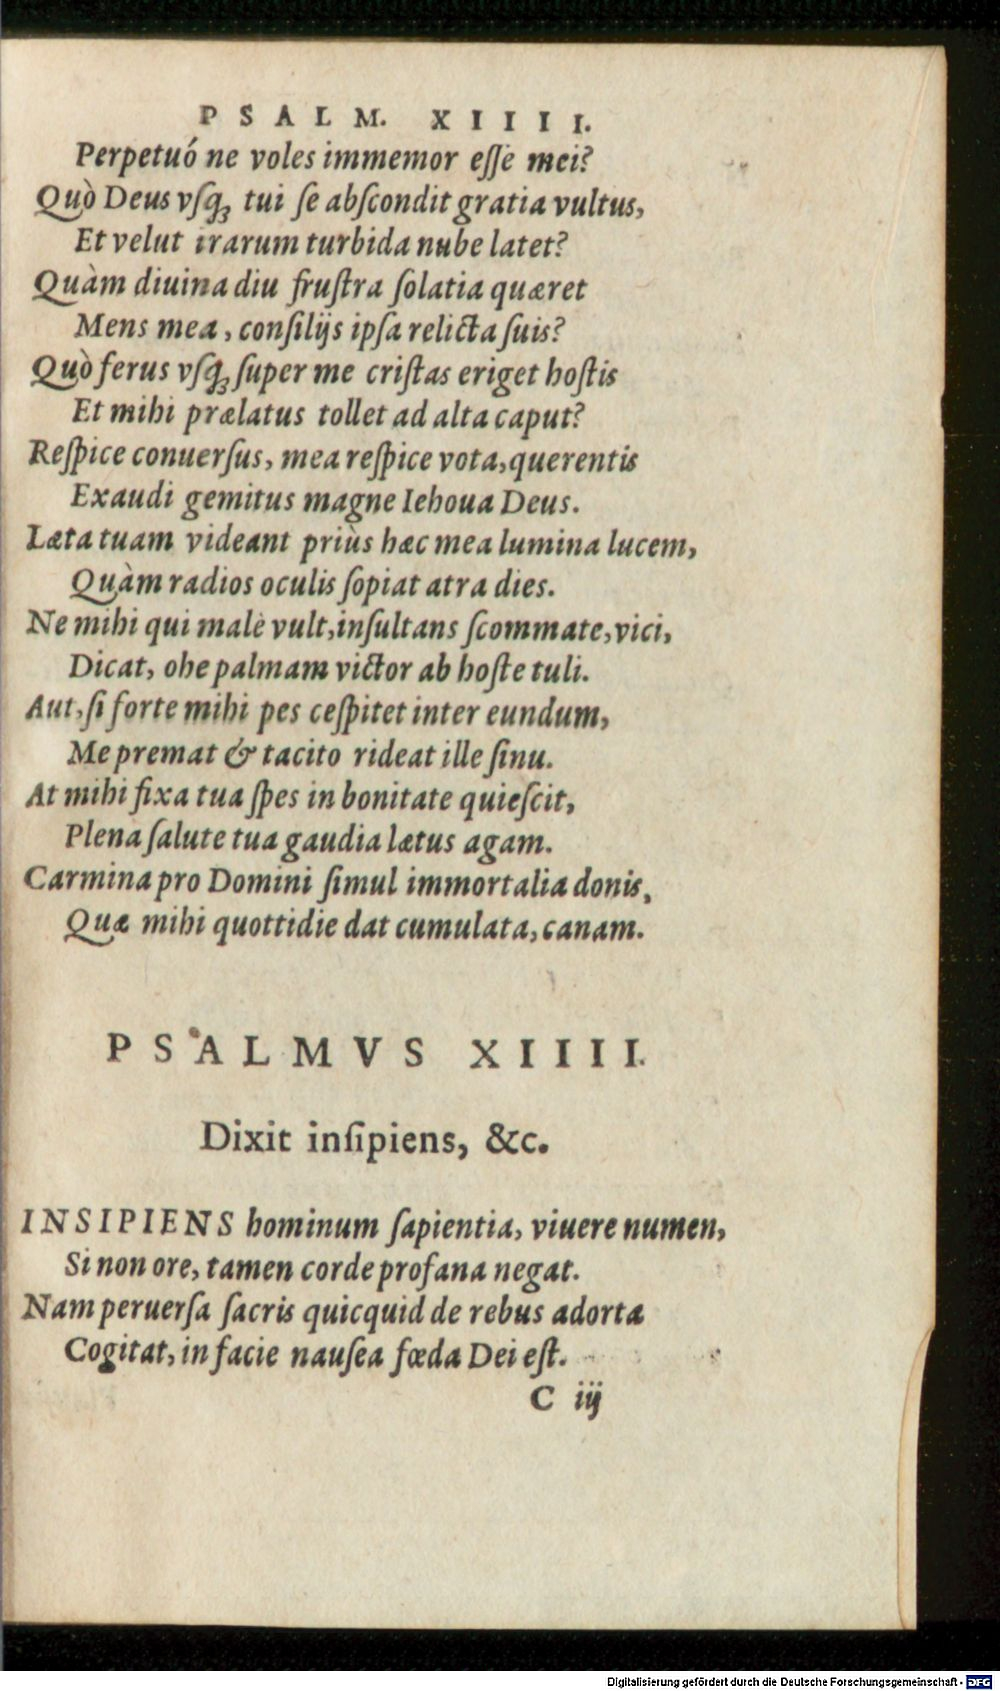 PSALM. XIIII.
Perpetuó ne voles immemor eſſe mei?
Quò Deus vſqꝫ tui ſe abſcondit gratia vultus,
Et velut irarum turbida nube latet?
Quàm diuina diu fruſtra ſolatia quæret
Mens mea, conſilijs ipſa relicta ſuis?
Quò ferus vſqꝫ ſuper me criſtas eriget hoſtis
Et mihi prælatus tollet ad alta caput?
Reſpice conuerſus, mea reſpice vota, querentis
Exaudi gemitus magne Iehoua Deus.
Læta tuam videant priùs hæc mea lumina lucem,
Quàm radios oculis ſopiat atra dies.
Ne mihi qui malè vult, inſultans ſcommate, vici,
Dicat, ohe palmam victor ab hoſte tuli.
Aut, ſi forte mihi pes ceſpitet inter eundum,
Me premat & tacito rideat ille ſinu.
At mihi fixa tua ſpes in bonitate quieſcit,
Plena ſalute tua gaudia lætus agam.
Carmina pro Domini ſimul immortalia donis,
Quæ mihi quottidie dat cumulata, canam.
PSALMVS XIIII.
Dixit inſipiens, &c.
INSIPIENS hominum ſapientia, viuere numen,
Si non ore, tamen corde profana negat.
Nam peruerſa ſacris quicquid de rebus adorta
Cogitat, in facie nauſea fœda Dei eſt.
C iij
Digitalisierung gefördert durch die Deutsche Forschungsgemeinschaft - DFG